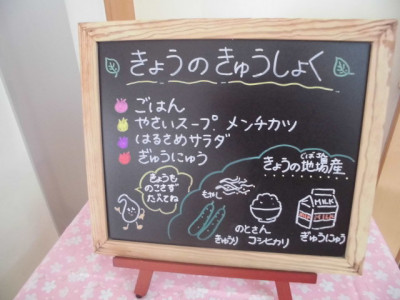 きょうのきゅうしょく
ごはん
やさいスープ. メンチカツ
はるさめサラダ
ぎゅうにゅう
きょうの地場産
じばさん
きょうも
のこさず
たべてね
もやし
MILK
MILK
のとさん
きゅうり コシヒカリ ぎゅうにゅう